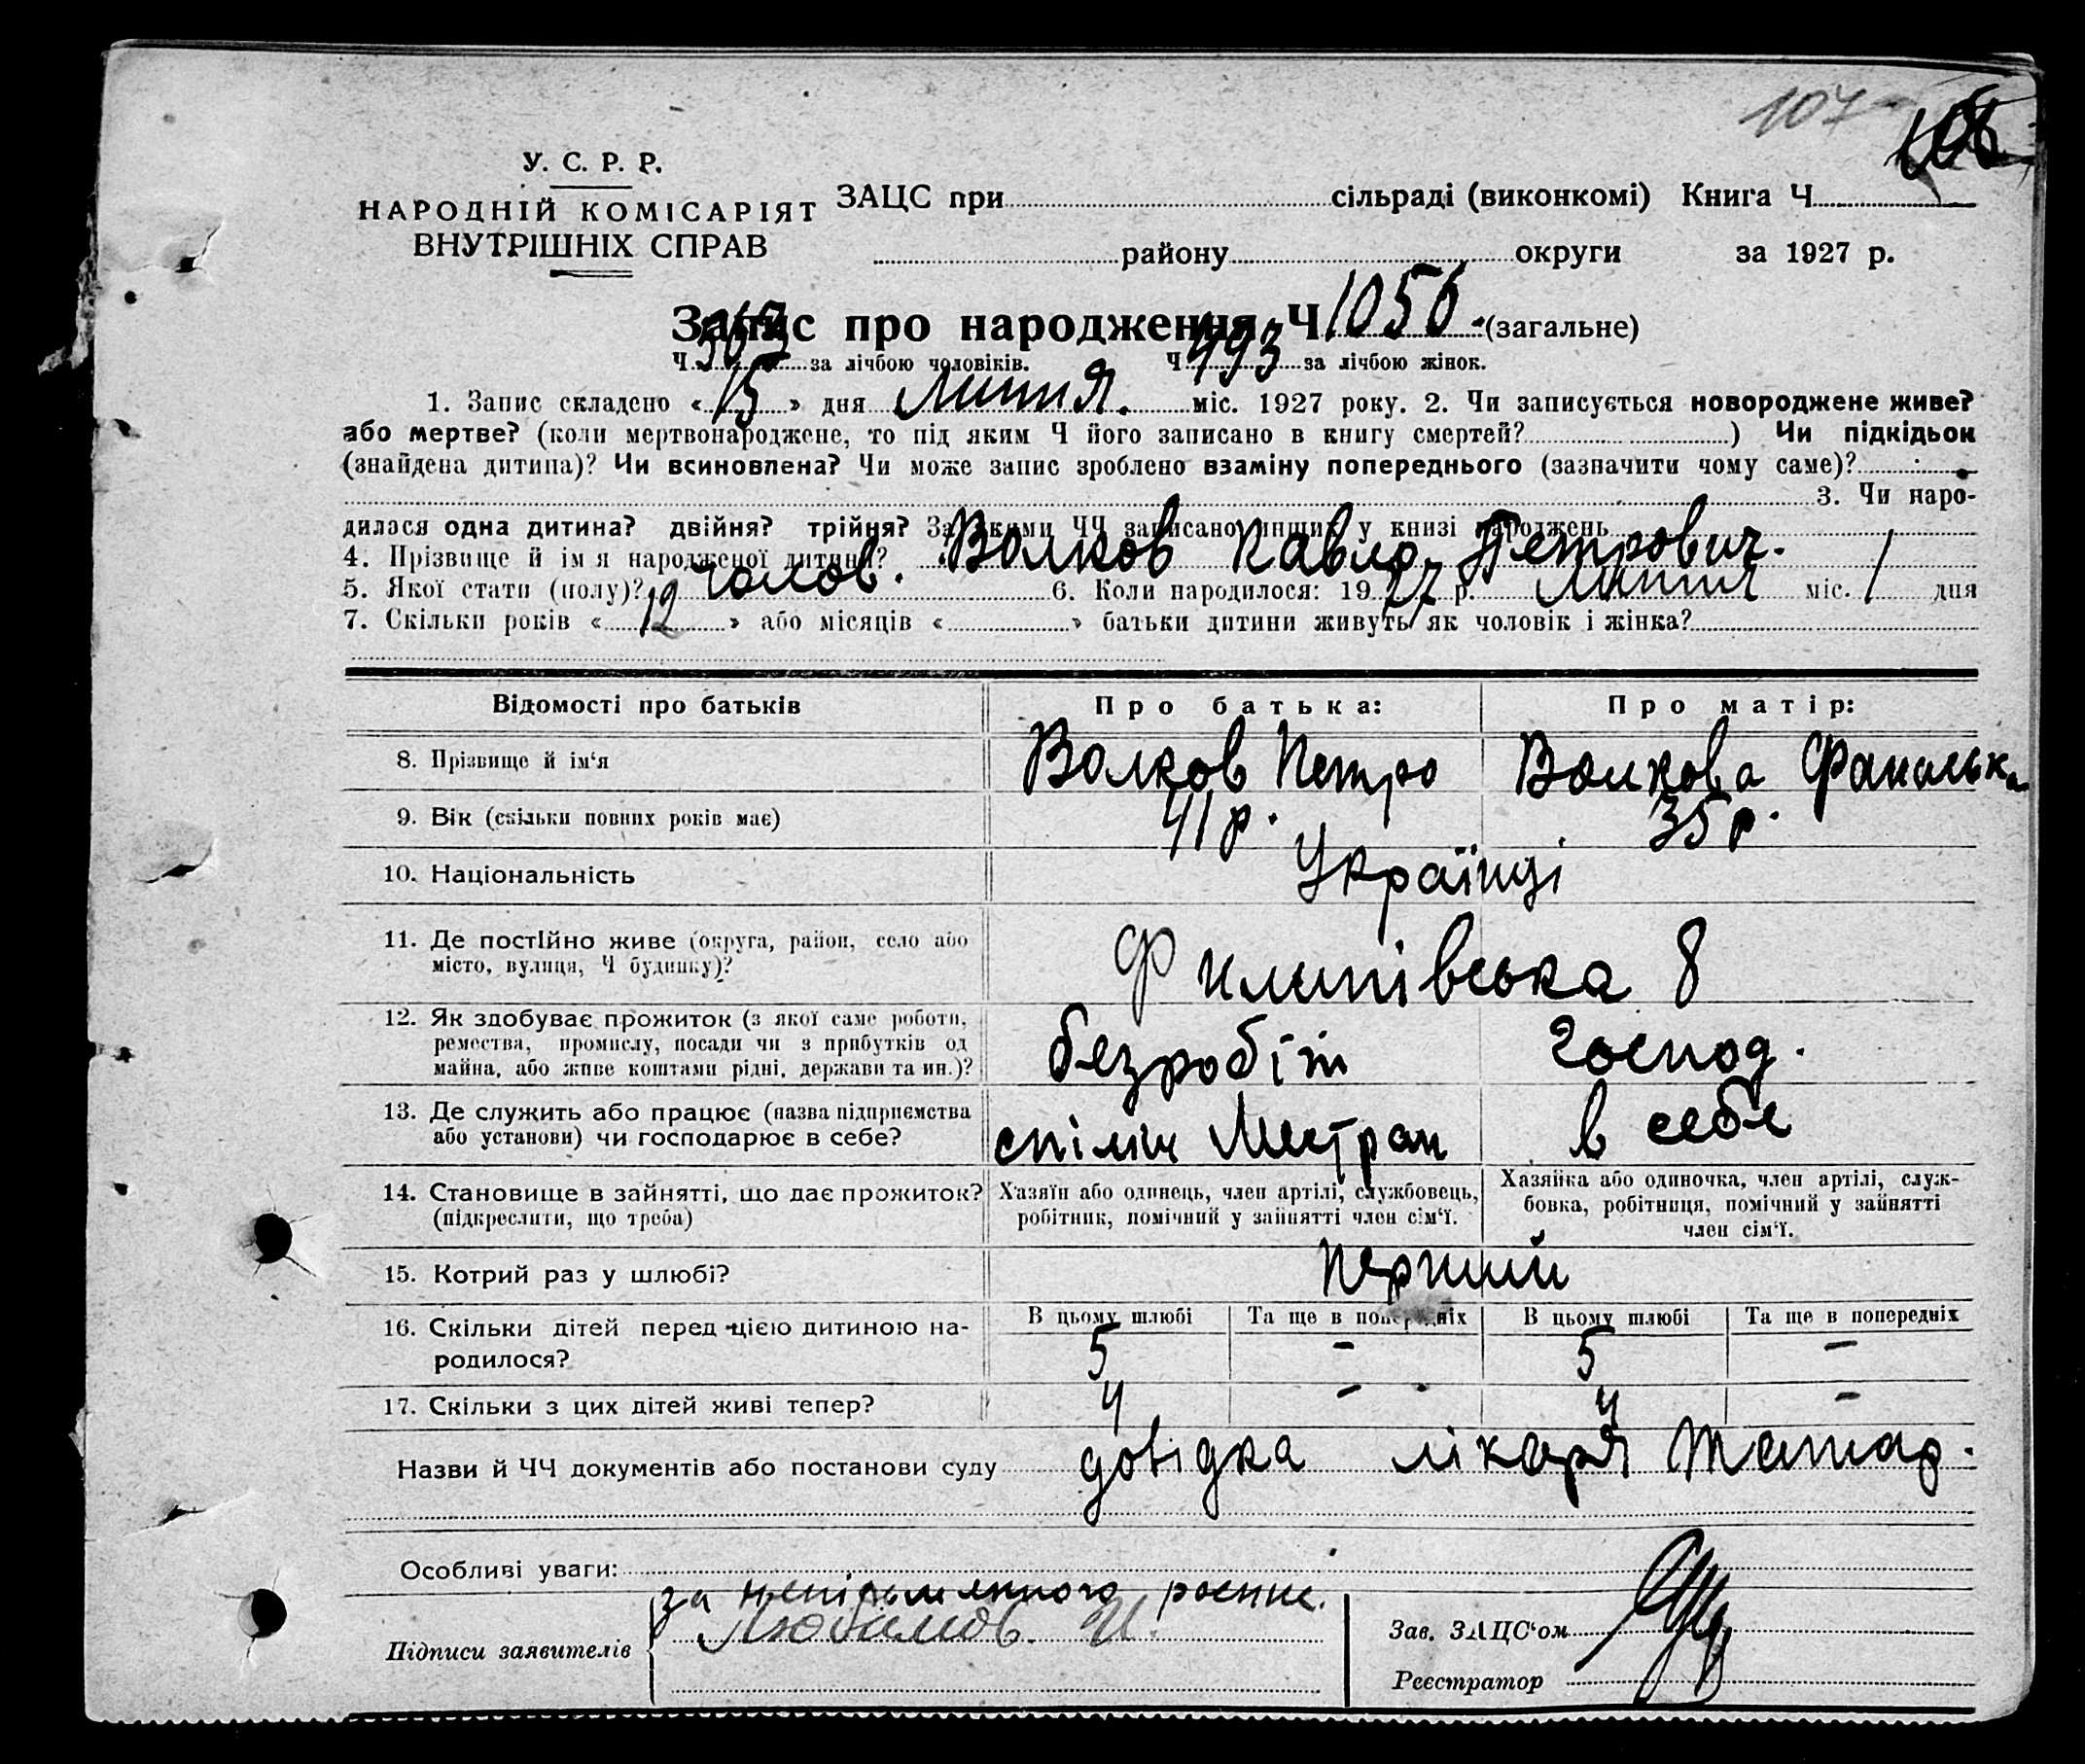 107
106
У. С. Р. Р.
НАРОДНІЙ КОМІСАРІЯТ
ВНУТРІШНІХ СПРАВ
ЗАЦС при сільраді (виконкомі) Книга Ч
району округи за 1927 р.
Запис про народження Ч 1056. (загальне)
Ч 563 за лічбою чоловіків. Ч 493 за лічбою жінок.
1. Запис складено « 15 » дня Липня. міс. 1927 року. 2. Чи записується новороджене живе?
або мертве? (коли мертвонароджене, то під яким Ч його записано в книгу смертей? ) Чи підкідьок
(знайдена дитина)? Чи всиновлена? Чи може запис зроблено взаміну попереднього (зазначити чому саме)?
3. Чи наро-
дилася одна дитина? двійня? трійня? За якими ЧЧ записано инших у книзі народжень
4. Прізвище й ім я народженої дитини? Волков Павло Петрович.
5. Якої стати (полу)? чолов. 6. Коли народилося: 19 27 р. липня міс. 1 дня
7. Скільки років « 12 » або місяців « » батьки дитини живуть як чоловік і жінка?
Відомості про батьків Про батька: Про матір:
8. Прізвище й ім‘я Волков Петро Волкова
9. Вік (скільки повних років має) 41 р. 35 р.
10. Національність Українці
11. Де постійно живе (округа, район, село або
місто, вулиця, Ч будинку)? Филипівська 8
12. Як здобуває прожиток (з якої саме роботи,
ремества, промислу, посади чи з прибутків од
майна, або живе коштами рідні, держави та ин.)? безробіт господ.
13. Де служить або працює (назва підприємства
або установи) чи господарює в себе? спілки Местран в себе
14. Становище в зайнятті, що дає прожиток?
(підкреслити, що треба)
Хазяїн або одинець, член артілі, службовець,
робітник, помічний у зайнятті член сім‘ї.
Хазяйка або одиночка, член артілі, служ-
бовка, робітниця, помічний у зайнятті
член сім‘ї.
15. Котрий раз у шлюбі? перший
16. Скільки дітей перед цією дитиною на-
родилося?
В цьому шлюбі Та ще в попередніх В цьому шлюбі Та ще в попередніх
5 - 5 -
17. Скільки з цих дітей живі тепер? 4 - 4 -
Назви й ЧЧ документів або постанови суду довідка лікаря
Особливі уваги:
за
Підписи заявителів Любимов. И.
Зав. ЗАЦС‘ом
Реєстратор